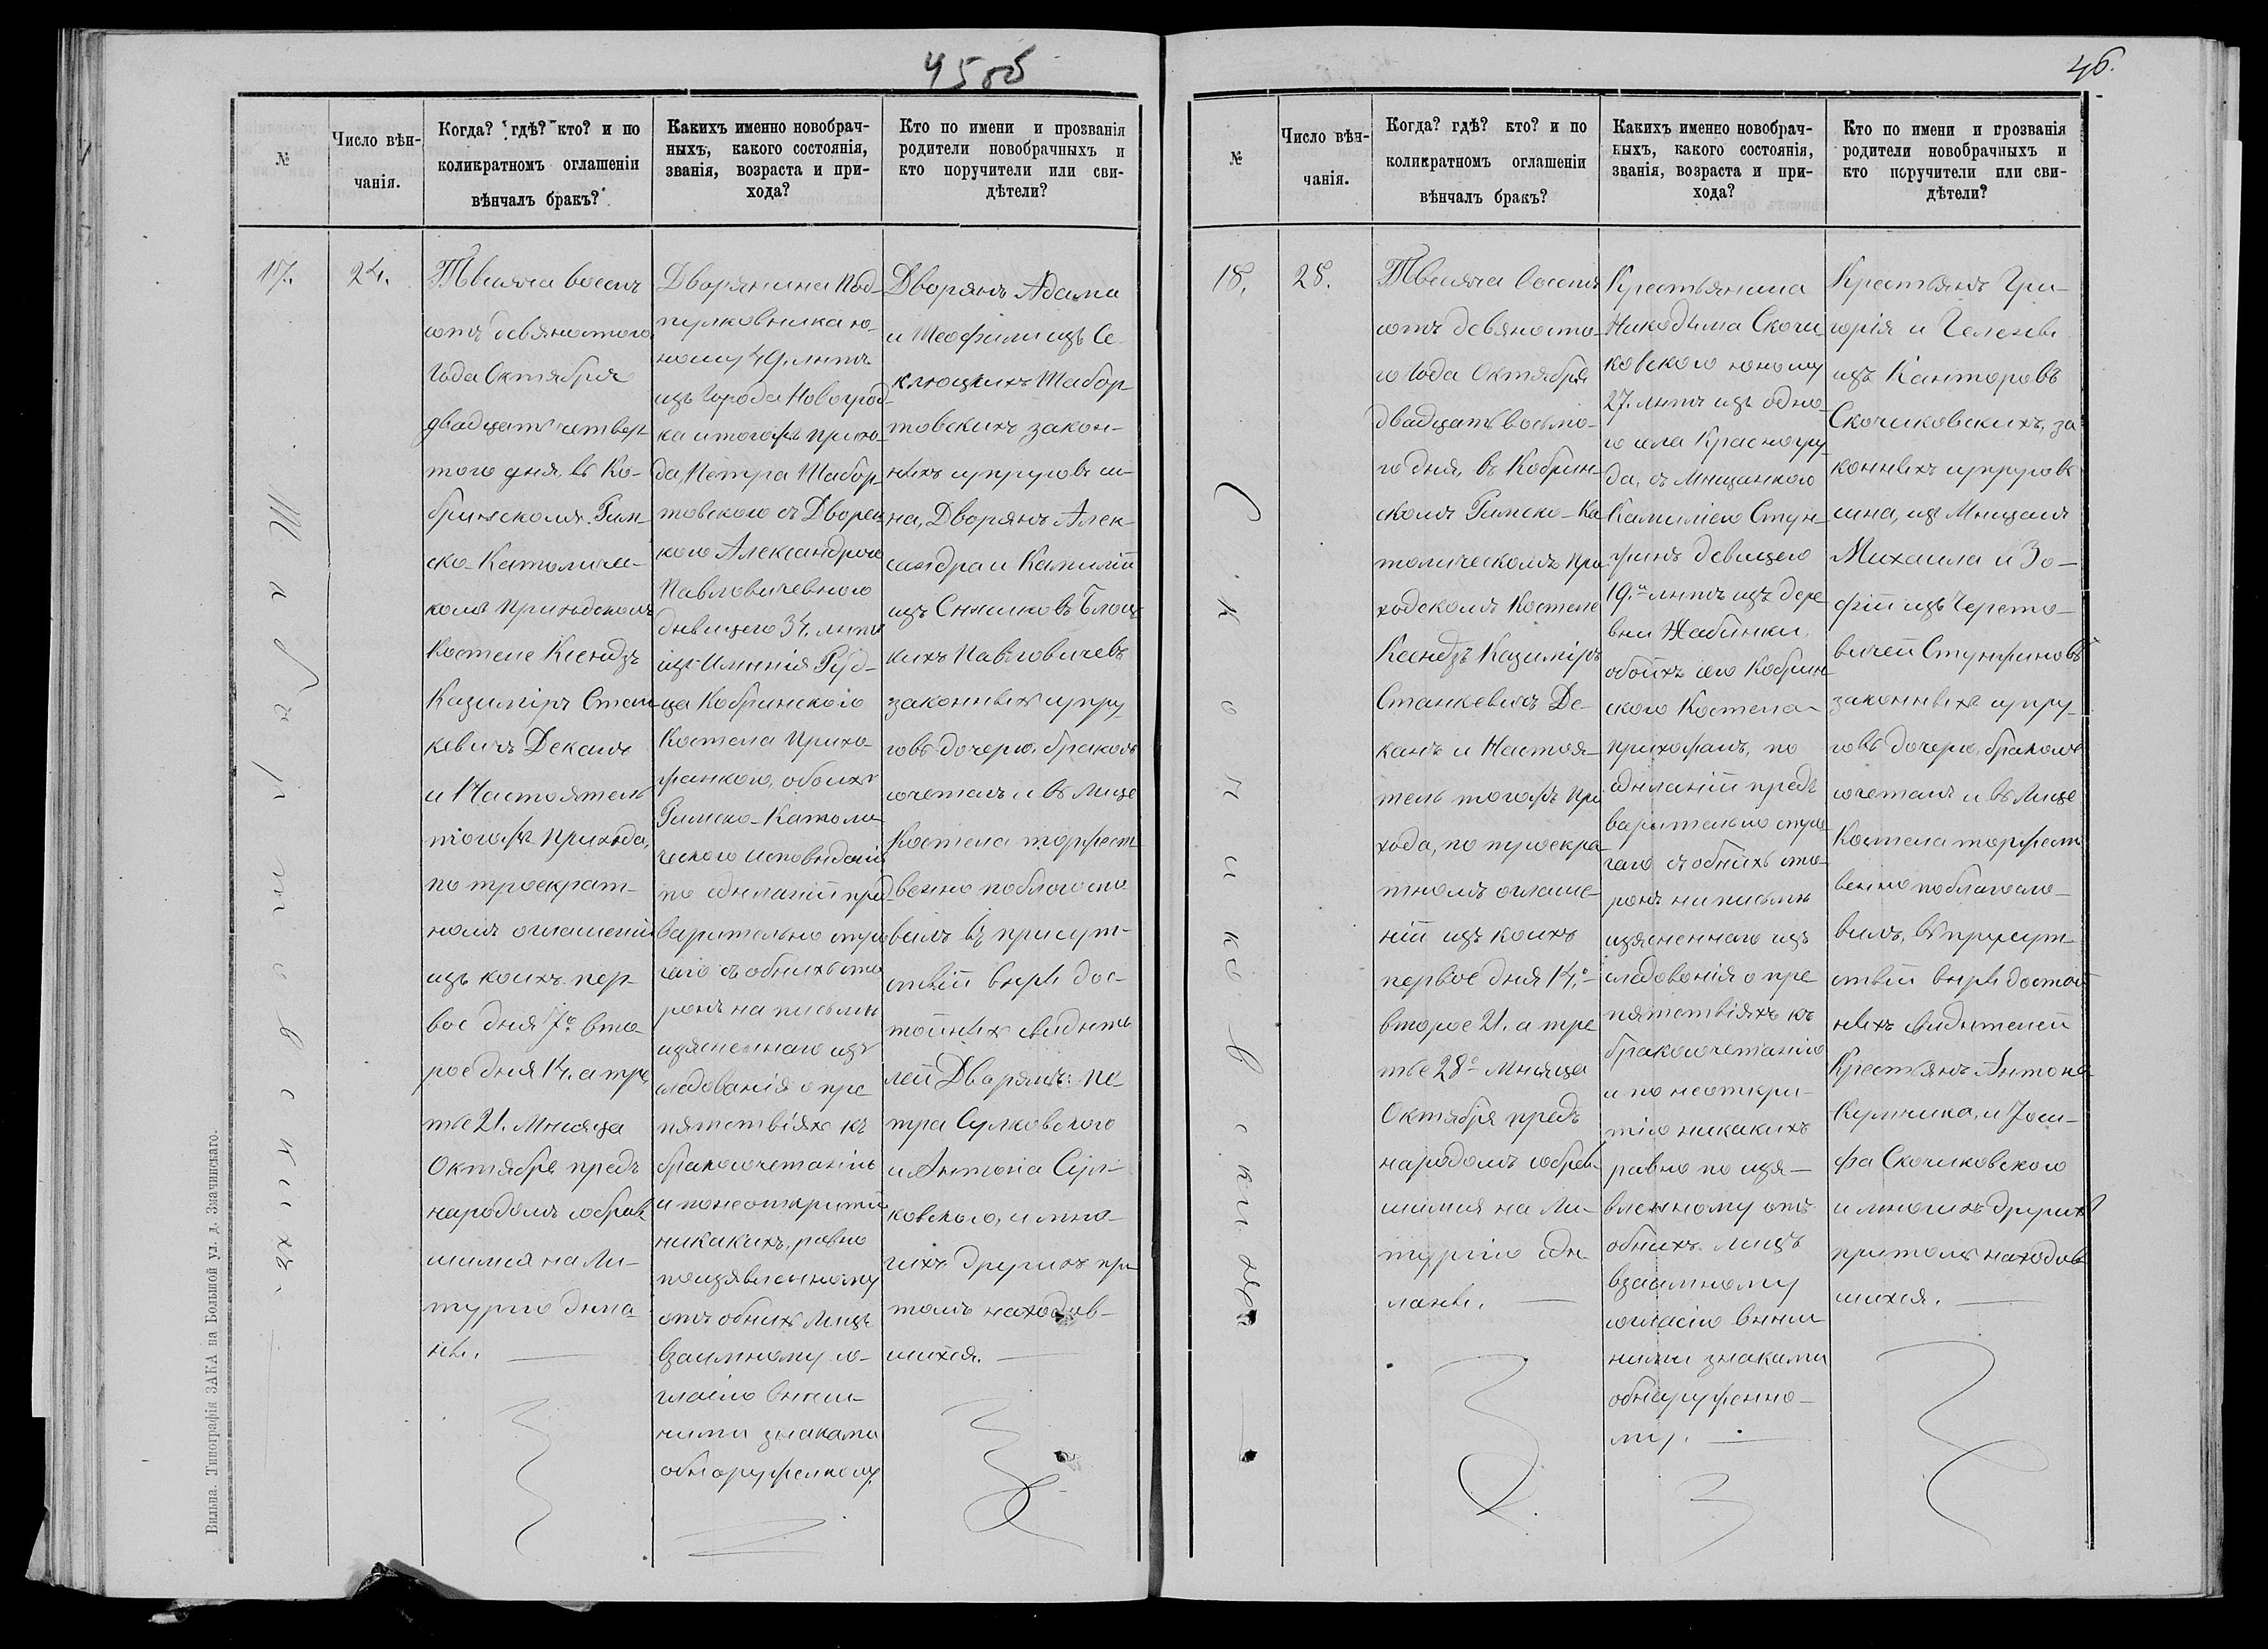 45об
№
Число вѣн-
чанія.
Когда? гдѣ? кто? и по
коликратномъ оглашеніи
вѣнчалъ бракъ?
Какихъ именно новобрач-
ныхъ, какого состоянія,
званія, возраста и при-
хода?
Кто по имени и прозванія
родители новобрачныхъ и
кто поручители или сви-
дѣтели?
17.
24.
Тысяча восем
сотъ девяностого
Года Октября
двадцать четвер
того дня, въ Ко-
бринскомъ Рим
ско-Католиче-
комъ Приходскомъ
Костеле Ксендзъ
Казиміръ Стан
кевичъ Деканъ
и Настоятель
тогожъ Прихода,
по троекрат-
номъ оглашеніи
изъ коихъ пер-
вое дня 7о вто
рое дня 14. а тре
тье 21. Мѣсяца
Октября предъ
народомъ собрав
шимся на Ли-
тургію дѣла-
ны.
Дворянина Под-
пулковника ю-
ному 49. лѣтъ
изъ Города Новогруд-
ка итогожъ прихо-
да, Петра Шабор-
товского съ Дворян
кою Александрою
Павловичевною
дѣвицею 34. лѣтъ
изъ Имѣнія Руд-
ца Кобринского
Костела Прихо-
жанкою, обоихъ
Римско-Католи-
ческого исповѣданія
по сдѣланіи пред-
варительно стро
гаго съ обѣихъ сто
ронъ на письмѣ
изясненнаго изъ
следованія о пре
пятствіяхъ къ
бракосочетанію
и по неоткритіи
никакихъ, равно
поизявленному
отъ обѣихъ Лицъ
взаимному со-
гласію внеш-
ними знаками
обнаруженному.
Дворянъ Адама
и Теофили изъ Се
клюцкихъ Шабор
товскихъ, закон-
ныхъ супруговъ сы-
на, Дворянъ Алек-
сандра и Камиліи
изъ Снѣшковъ Блоц
кихъ Павловичевъ
законныхъ супру
говъ дочерю, бракомъ
сочеталъ и въ Лице
Костела торжест
венно поблагосло
вилъ въ присут-
ствіи вѣры дос-
тойныхъ свидѣте
лей Дворянъ: Пе-
тра Сулковского
и Антона Сул-
ковского, и мно-
гихъ другихъ при
томъ находив-
шихся.
Шабортовскихъ
Вильна. Типографія ЗАКА на Большой ул. д. Змачинскаго.
46.
№
Число вѣн-
чанія.
Когда? гдѣ? кто? и по
коликратномъ оглашеніи
вѣнчалъ бракъ?
Какихъ именно новобрач-
ныхъ, какого состоянія,
званія, возраста и при-
хода?
Кто по имени и прозванія
родители новобрачныхъ и
кто поручители или сви-
дѣтели?
18.
28.
Тысяча восемъ
сотъ девяносто-
го Года Октября
двадцать восьмо-
го дня, въ Кобрин-
скомъ Римско-Ка
толическомъ При
ходскомъ Костеле
Ксендзъ Казиміръ
Станкевичъ Де-
канъ и Настоя-
тель тогожъ При
хода, по троекра-
тномъ оглаше-
ніи изъ коихъ
первое дня 14.о
второе 21. а тре
тье 28о Мѣсяца
Октября предъ
народомъ собрав
шимся на Ли-
тургію сдѣ-
ланы.
Крестьянина
Никодыма Скочи
ковского юному
27. лѣтъ изъ одно-
го села Красногру
да, съ Мѣщанкою
Камилію Стун-
жинъ девицею
19.ъ лѣтъ изъ дере
вни Жабинки,
обоихъ сего Кобрин
ского Костела
прихожанъ, по
сдѣланіи пред
варительно стро
гаго съ обѣихъ сто-
ронъ на письмѣ
изясненнаго изъ
следованія о пре
пятствіяхъ къ
бракосочетанію
и по неоткри-
тію никакихъ
равно по изя-
вленному отъ
обѣихъ Лицъ
взаимному
согласію внеш
ними знаками
обнаруженно-
му.
Крестьянъ Гри-
горія и Гелены
изъ Канторовъ
Скочиковскихъ, за
конныхъ супруговъ
сына, изъ Мѣщанъ
Михаила и Зо-
фіи изъ Черето-
вичей Стунжиновъ
законныхъ супру-
говъ дочерю, бракомъ
сочеталъ и въ Лице
Костела торжест
венно поблагосло-
вилъ, въ присут-
ствіи вѣры достой
ныхъ свидѣтелей
Крестьянъ Антона
Кульчика, и Іоси-
фа Скочиковского
и многихъ другихъ
притомъ находив
шихся.
Скочиковскихъ